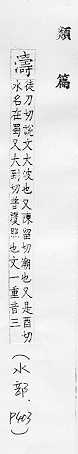 類篇
濤
徒刀切説文大波也又陳留切潮也又是酉切
水名在蜀又大到切普覆照也文一重音三
(水部．P403)